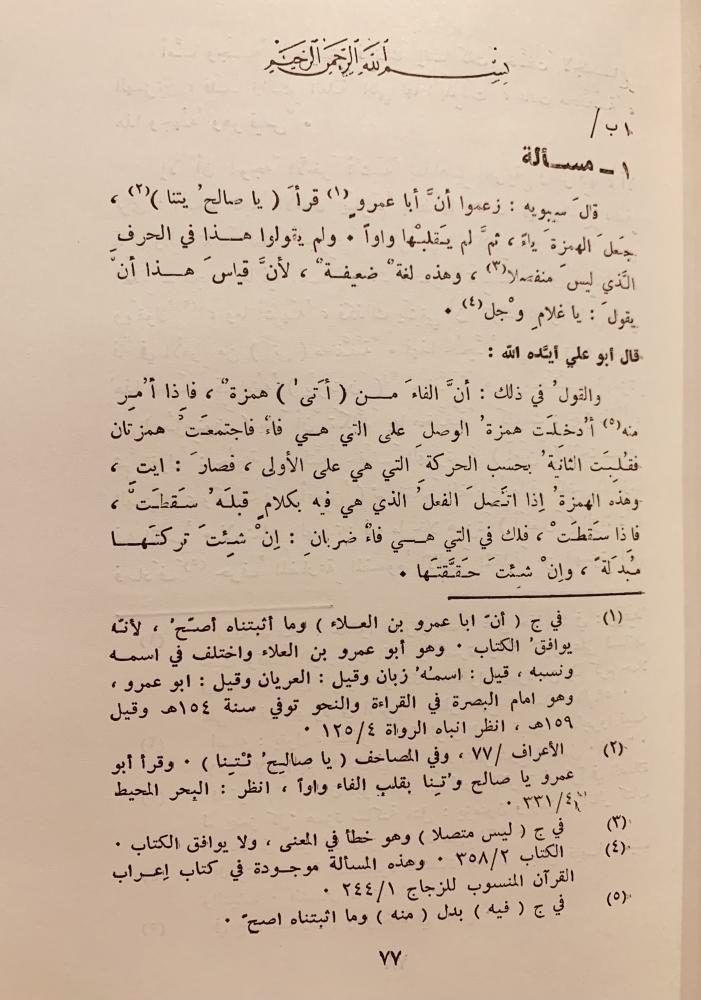 بسم الله الرحمن الرحيم
١ ب /
١ ـ مسـألة
قالَ سيبويه : زعموا أنَّ أبا عمروٍ (١) قرأَ ( يا صالحُ يتنا )(٢) ،
جعَلَ الهمزةَ ياءً ، ثمَّ لم يَقلبْها واواً ٠ ولم يقولوا هـذا في الحرفِ
الَّذي ليسَ منفصلا(٣) ، وهذه لغةٌ ضعيفـةٌ ، لأنَّ قياسَ هـذا أنْ
يقولَ : يا غلامِ وْجل(٤) ٠
قال أبو علي أيَّده الله :
والقولُ في ذلك : أنَّ الفاءَ مـن ( أَتى' ) همزةٌ ، فإذا أُمِر
منه(٥) أُدخلَت همزةُ الوصلِ على التي هـي فاءٌ فاجتمعَتْ همزتان
فقُلِبَت الثانيةُ بحسب الحركةِ التي هي على الأولى ، فصارَ : ايتِ ،
وهذه الهمزةُ إذا اتَّصلَ الفعلُ الذي هي فيه بكلامٍ قبلَهُ سَقطـتْ ،
فاذا سَقطَتْ ، فلك في التي هـي فاءٌ ضربانِ : إنْ شئتَ تركتَهـا
مُبدَلةً ، وإنْ شئتَ حَقَّقتَها ٠
(١) في ج ( أنّ ابا عمرو بن العـلاء ) وما أثبتناه أصـحّ ، لأنّه
يوافقُ الكتاب ٠ وهو أبو عمرو بن العلاء واختلف في اسمـه
ونسبه ، قيل : اسمُهُ زبان وقيل : العريان وقيل : ابو عمرو ،
وهو امام البصرة في القراءة والنحو توفي سنة ١٥٤هـ وقيل
١٥٩هـ ، انظر انباه الرواة ١٢٥/٤ ٠
(٢) الأعراف /٧٧ ، وفي المصاحف ( يا صالِحُ ئْتِنا ) ٠ وقرأ أبو
عمرو يا صالح وُتِنا بقلبِ الفاء واواً ، انظر : البحر المحيط
٣٣١/٤ ٠
(٣) في ج ( ليس متصلا ) وهو خطأ في المعنى ، ولا يوافق الكتاب ٠
(٤) الكتاب ٣٥٨/٢ ٠ وهذه المسألة موجـودة في كتاب إعـراب
القرآن المنسوب للزجاج ٢٤٤/١ ٠
(٥) في ج ( فيه ) بدل ( منه ) وما اثبتناه اصحّ ٠
٧٧